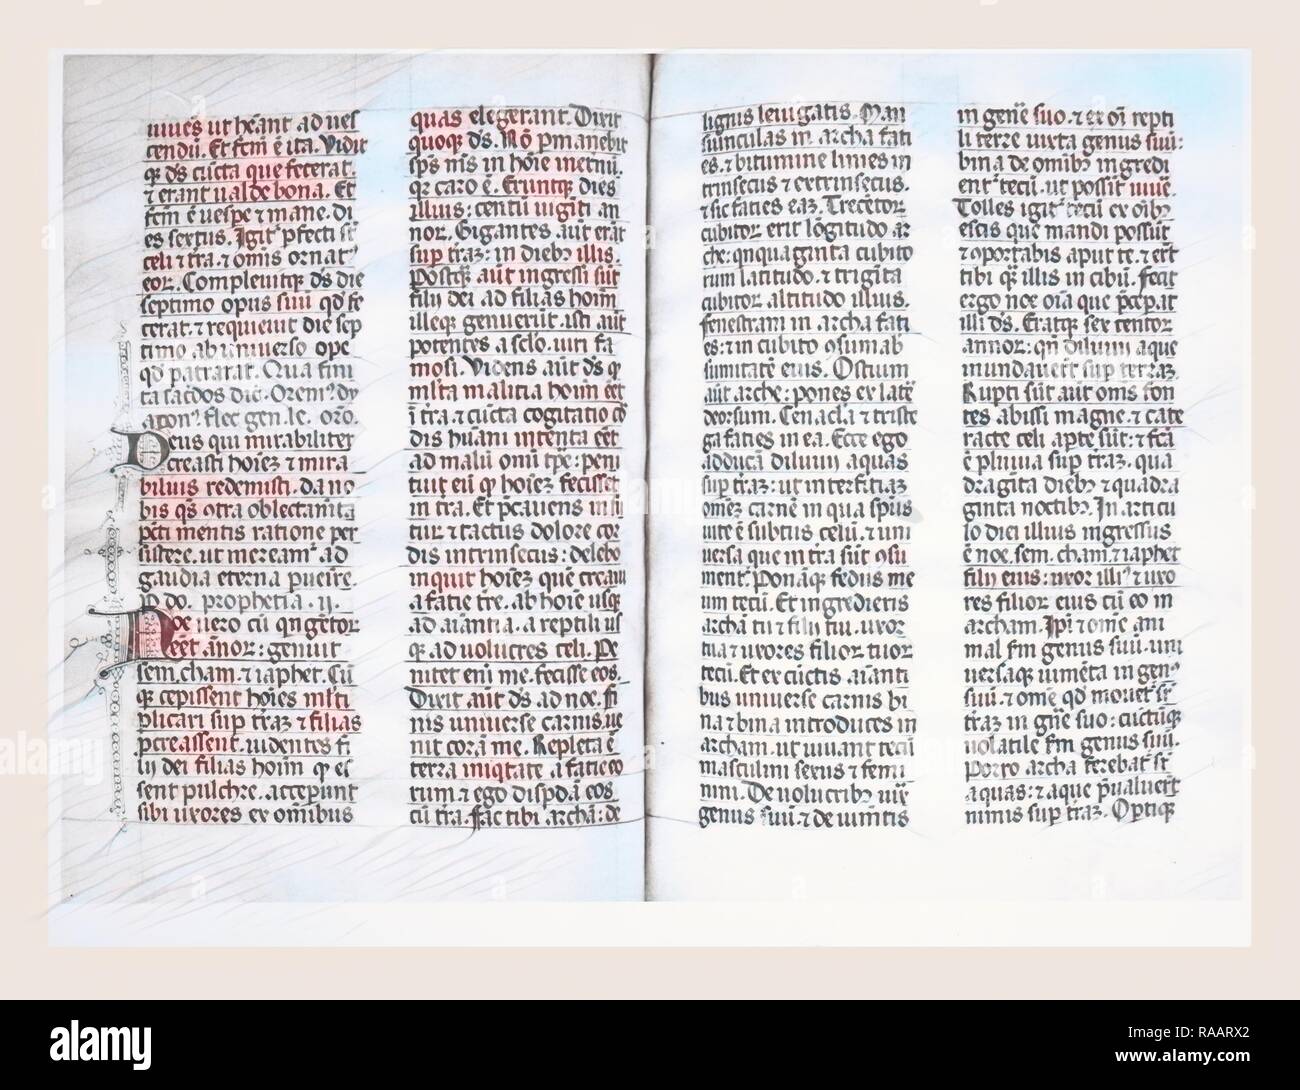 viues ut heant ad ues
cendū. Et fcm̄ ē ita. Vidit
q̄ ds̄ cūcta que fecerat.
⁊ erant ualde bona. Et
fcm̄ ē uespe ⁊ mane. di
es sextus. Igit᷑ pfecti st̄
celi ⁊ tra. ⁊ omīs ornat᷒
eor. Compleuitqꝫ ds̄ die
septimo opus suū qd̄ fe
cerat. ⁊ requieuit die sep
timo ab uniuerso ope
qd̄ patrarat. Qua fini
ta sacdos dic̄. Orem᷒. dy
acon᷒. flec gen le. or̄o.
Deus qui mirabiliter
creasti hoīez ⁊ mira
bilius redemisti. da no
bis qs̄ ⁊tra oblectamīta
pcti mentis ratione per
sistere. ut meream᷑ ad
gaudia eterna pueīre.
P do. prophetia. ij.
Noe uero cū qn̄gētor
eēt annor: genuit
sem. cham. ⁊ iaphet. Cū
qꝫ cepissent hoīes mlti
plicari sup traz ⁊ filias
pcreassent. uidentes fi
lij dei filias hoīm qꝫ es
sent pulchre. acceperunt
sibi uxores ex omībus
quas elegerant. Dixit
quoqꝫ ds̄. Nō pmanebit
sps̄ ms̄ in hoīe in etnū.
qr caro ē. Eruntqꝫ dies
illius: centū uigīti an
nor. Gigantes aūt erāt
sup traz: in diebꝫ illis.
Postqꝫ aūt ingressi sūt
filij dei ad filias hoīm
illeqꝫ genuerūt. isti aūt
potentes a sclo. uiri fa
mosi. Videns aūt ds̄ qꝫ
mlta malitia hoīm eēt
ī tra. ⁊ cūcta cogitatio cor
dis huani intenta eēt
ad malū omī tpe: peni
tuit eū qꝫ hoīez fecisset
in tra. Et pcauens in fu
tur ⁊ tactus dolore cor
dis intrinsecus: delebo
inquit hoīez quē creaui
a facie tre. ab hoīe usqꝫ
ad aiantia. a reptili us
qꝫ ad uolucres celi. Pe
nitet eni me. fecisse eos.
Dixit aūt ds̄ ad noe. Fi
nis uniuerse carnis ue
nit corā me. Repleta ē
terra iniqtate a facie eo
rum. ⁊ ego dispdā eos
cū tra. fac tibi archā: de
lignis leuigatis. Man
siunculas in archa faci
es. ⁊ bitumine linies in
trinsecus ⁊ extrinsecus.
⁊ sic facies eaz. Trecētor
cubitor erit lōgitudo ar
che: qnquaginta cubito
rum latitudo. ⁊ trigīta
cubitor altitudo illius.
fenestram in archa faci
es: ⁊ in cubito ⁊sumab
sumitatē eius. Ostium
aūt arche: pones ex latē
deorsum. Cenacla ⁊ triste
ga facies in ea. Ecce ego
adducā diluuij aquas
sup traz: ut interficiaz
omēz carnē in qua spūs
uite ē subtus celū. ⁊ uni
uersa que in tra sūt ⁊su
ment. Ponāqꝫ fedus me
um tecū. Et ingredieris
archā tu ⁊ filij tui. uxor
tua ⁊ uxores filior tuor
tecū. Et ex cūctis aiānti
bus uniuerse carnis bi
na ⁊ bina introduces in
archam. ut uiuant tecū
masculini sexus ⁊ femi
nini. De uolucribꝫ iux
genus suū. ⁊ de iumētis
in genē suo. ⁊ ex oī repti
li terre iuxta genus suū:
bina de omībꝫ ingredi
ent᷑ tecū. ut possīt uiue.
Tolles igit᷑ tecū ex oībꝫ
escis que mandi possūt
⁊ ⁊portabis aput te. ⁊ erūt
tibi qꝫ illis in cibū. Fecit
ergo noe oīa que pceperat
illi ds̄. Eratqꝫ sex centor
annor. qn̄ diluuij aque
inundauerūt sup terraz.
Rupti sūt aūt oms̄ fon
tes abissi magne. ⁊ cate
racte celi apte sūt: ⁊ fcā
ē pluuia sup traz. qua
dragita diebꝫ ⁊ quadra
ginta noctibꝫ. In articu
lo diei illius ingressus
ē noe. sem. cham. ⁊ iaphet
filij eius: uxor illi᷒ ⁊ uxo
res filior eius cū eo in
archam. Ipī ⁊ omē ani
mal fm genus suū. uni
uersaqꝫ iumēta in gen᷒
suū. ⁊ omē qd̄ mouet᷑ sr̄
traz in gnē suo: cūctūqꝫ
uolatile fm genus suū.
Porro archa ferebat᷑ sr̄
aquas: ⁊ aque pualuerūt
nimis sup traz. Optiqꝫ
alamy
Image ID: RAARX2
www.alamy.com